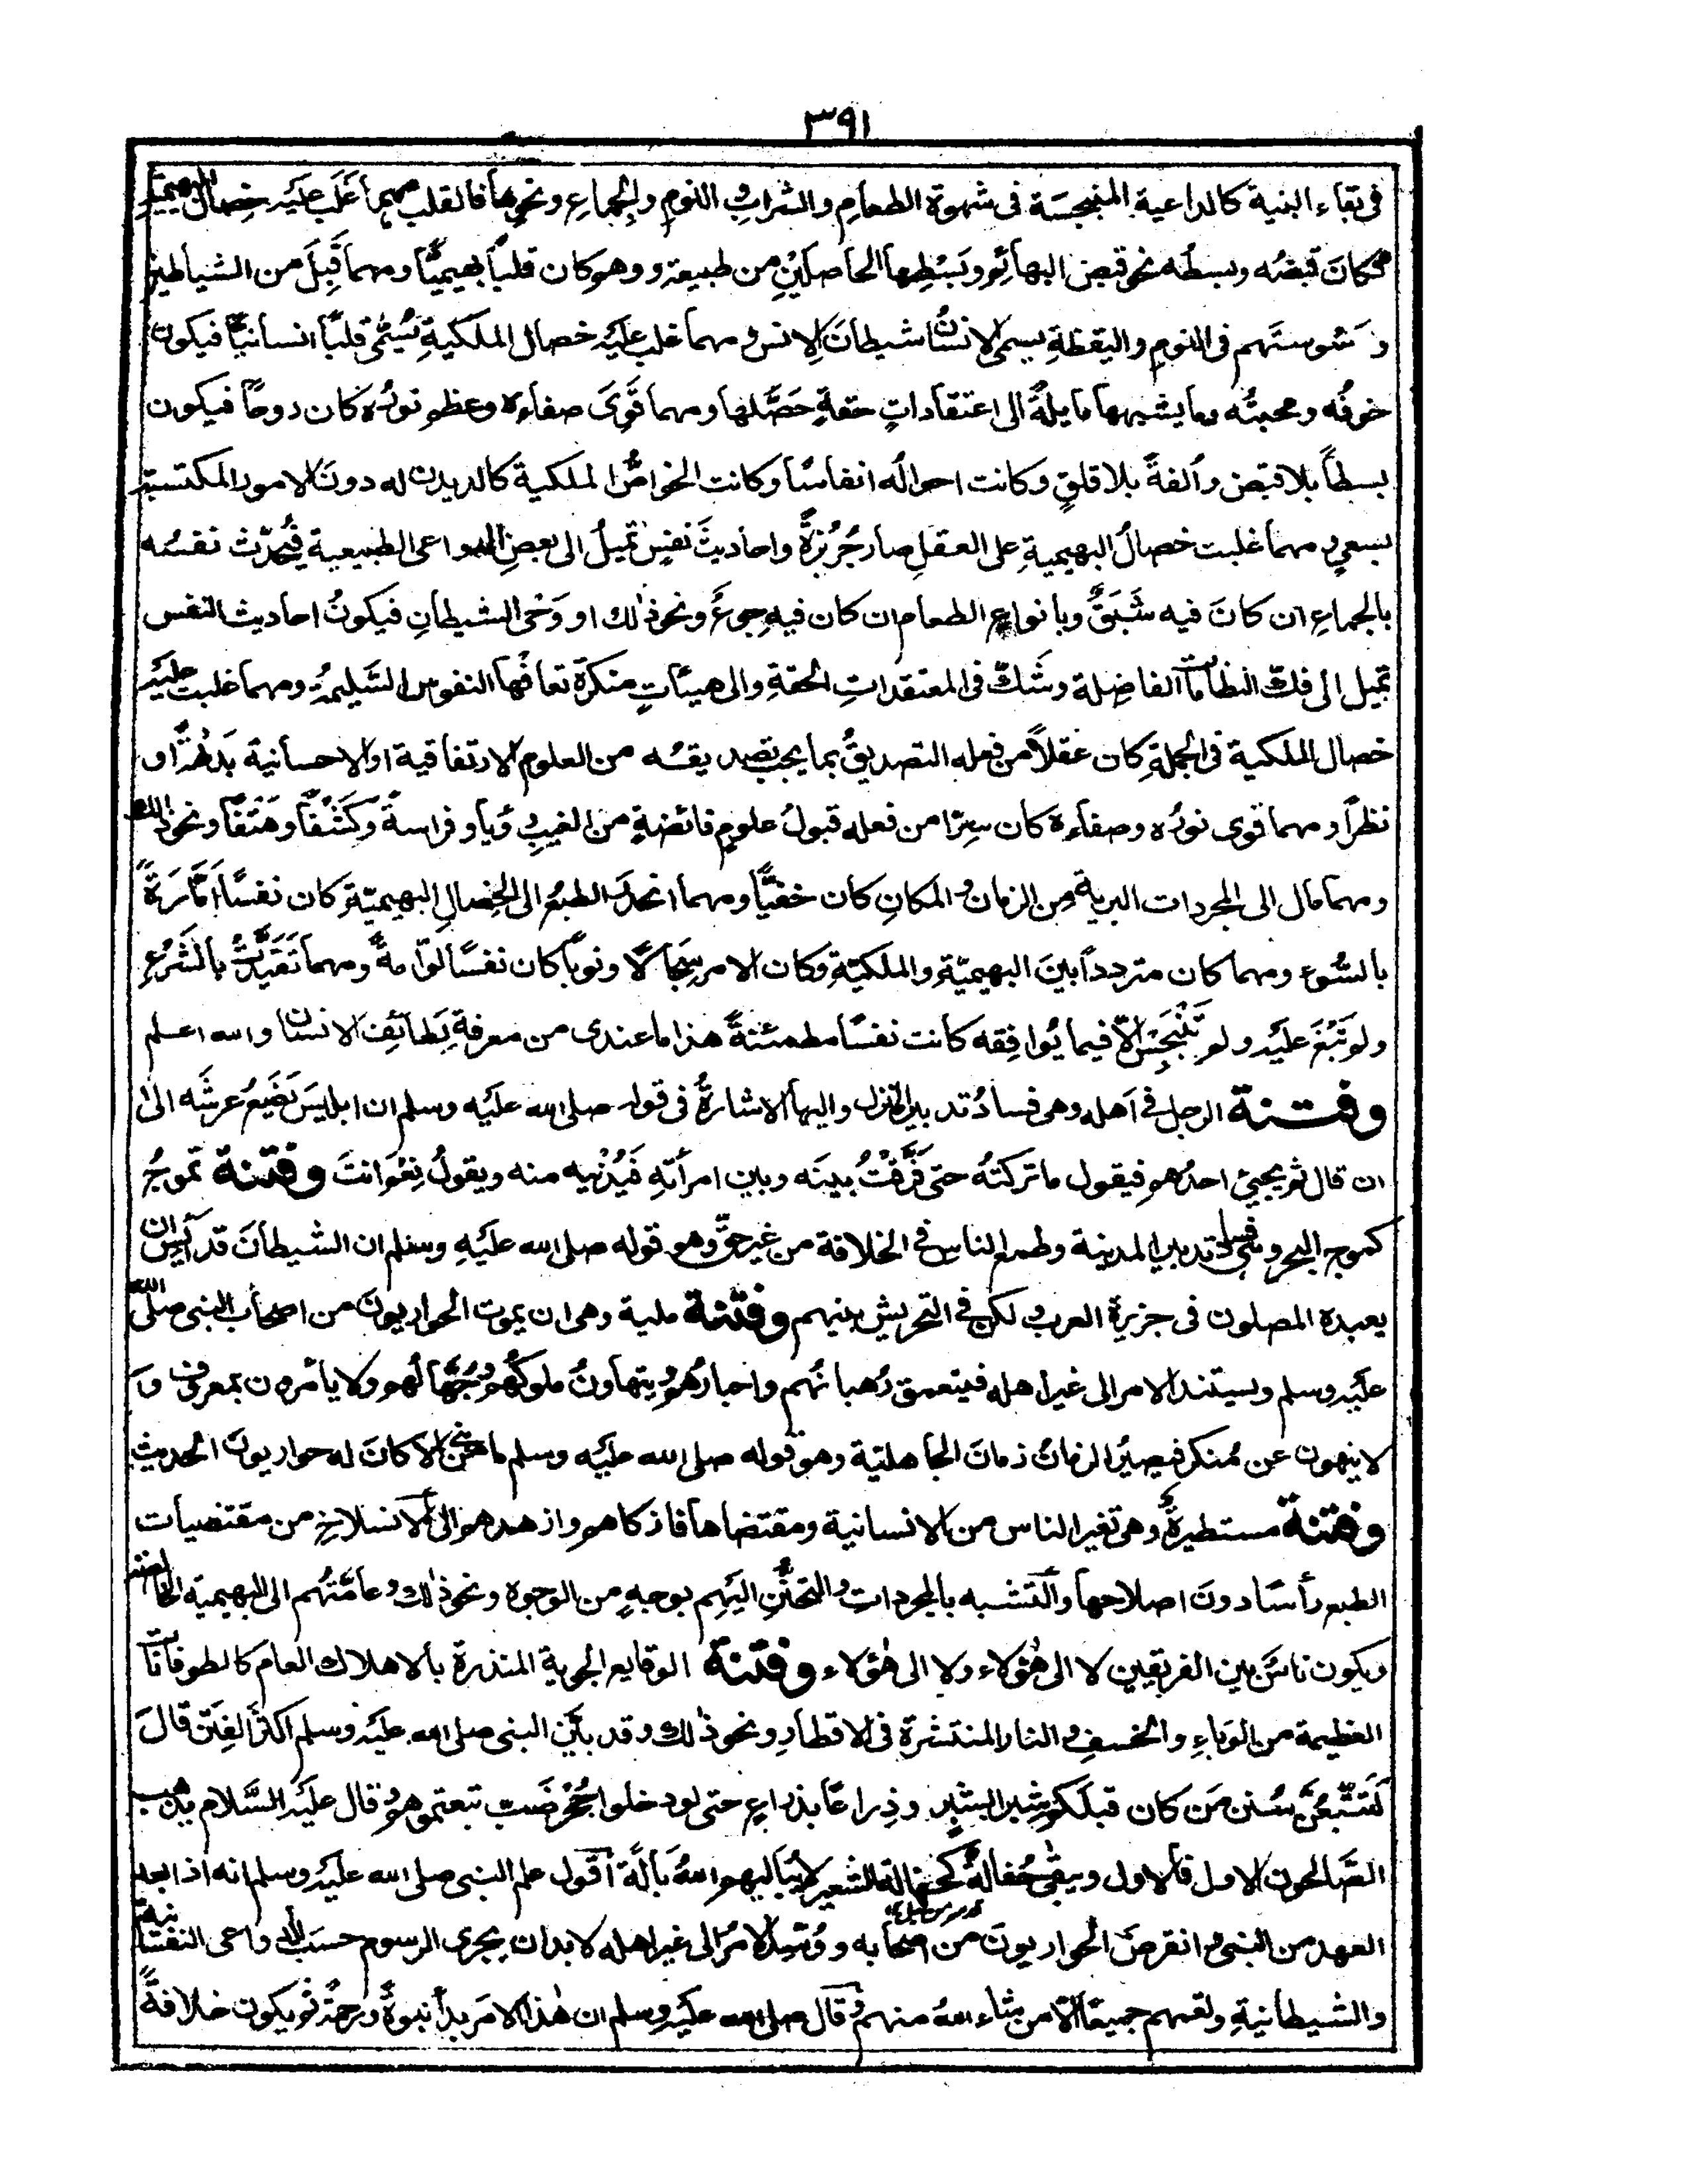 ٣٩١
فى بقاء البنية كالداعية المنبجسة فى شهوة الطعام والشراب والنوم والجماع ونحوها فالقلب مهما غلب عليه خصال البهيمية
فكان قبضُه وبسطُه نحو قبض البهائم وبَسْطِها الحاصلَيْنِ من طبيعة ووهم كان قلبًا بهيميًّا ومهما قَبِلَ من الشياطين
وسوستَهم فى النومِ واليقظةِ يسمى الانسانُ شيطانَ الانس ومهما غلب عليه خصال الملكيةِ يُسمّى قلبًا انسانيًّا فيكون
خوفُه ومحبتُه وما يشبهها مايلةً الى اعتقاداتٍ حقةٍ حَصَّلها ومهما قَوِىَ صفاءه وعظم نورُه كان روحًا فيكون
بسطاً بلا قبض وألفةً بلا قلقٍ وكانت احوالُه انفاسًا وكانت الخواصُّ الملكية كالديدن له دونَ الامور المكتسبة
بسعىٍ ومهما غلبت خصالُ البهيمية على العقلِ صار جُرْبُزةً واحاديثَ نفسٍ تميلُ الى بعض الدواعى الطبيعية فيُحدّث نفسَه
بالجماعِ ان كانَ فيه شَبَقٌ وبانواعِ الطعام ان كان فيه جوعٌ ونحو ذلك او وَحْىَ الشيطانِ فيكونُ احاديث النفس
تميل الى فكّ النظامات الفاضلة وشَكٍّ فى المعتقداتِ الحقةِ والى هيئاتٍ منكرة تعافُها النفوسُ السَّليمةُ ومهما غلبت عليه
خصال الملكية فى الجملةِ كان عقلاً من فعله التصديقُ بما يجب تصديقُه من العلوم الارتفاقية او الاحسانية بَداهةً او
نظرًا ومهما قوى نورُه وصفاءه كان سِرًّا من فعله قبولُ علومٍ فائضةٍ من الغيبِ رؤيا وفراسةً وكَشْفًا وهَتْفًا ونحو ذلك
ومهما مال الى المجردات البرية من الزمان والمكانِ كان خفيًّا ومهما انحدرَ الطبعُ الى الخصالِ البهيميّة كان نفسًا اَمَّارَةً
بالسُّوء ومهما كان مترددًا بينَ البهيميّة والملكيّة وكان الامر سِجَالًا ونوبًا كان نفسًا لوّامةً ومهما تَقَيَّدَتْ بالشَّرْعِ
ولم تَبْغِ عليه ولم تَنْبَجِسْ الّا فيما يُوافِقه كانت نفسًا مطمئنةً هذا ما عندى من معرفةِ لطائفِ الانسان والله اعلم
وفتنة الرجل فى اَهله وهى فسادُ تدبير المنزل واليها الاشارةُ فى قوله صلى الله عليه وسلم ان ابليسَ يَضَعُ عرشَه الى
ان قال ثم يجيئ احدُهم فيقول ما تركتُه حتى فَرَّقْتُ بينَه وبين امرأتهِ فَيُدْنِيه منه ويقولُ نِعْمَ انتَ وفتنة تموجُ
كموج البحر وهى فساد تدبير المدينة وطمع الناس فى الخلافة من غير حقّ وهو قوله صلى الله عليه وسلم ان الشيطانَ قد اَيِسَ ان
يعبده المصلون فى جزيرة العرب ولكن فى التحريش بينهم وفتنة ملية وهى ان يموت الحواريونَ من اصحاب النبى صلى الله
عليه وسلم ويستند الامر الى غير اهله فيتعمق رُهبانُهم واحبارُهم ويتهاونُ ملوكُهم وجُهّالُهم ولا يأمرون بمعروف و
لا ينهون عن مُنكر فيصيرُ الزمانُ زمانَ الجاهليّة وهو قوله صلى الله عليه وسلم ما من نبى الا كانَ له حواريونَ الحديث
وفتنة مستطيرةٌ وهى تغير الناس من الانسانية ومقتضاها فازكاهم وازهدهم الى الانسلاخ من مقتضيات
الطبع رأسًا دونَ اصلاحها والتشبه بالمجردات والتحنُّنِ اليهم بوجهٍ من الوجوه ونحو ذلك وعامّتُهم الى البهيمية الخالصة
ويكون ناسٌ بين الفريقين لا الى هٰؤلاء ولا الى هٰؤلاء وفتنة الوقايع الجوية المنذرة بالاهلاك العام كالطوفانات
العظيمة من الوَباءِ والخسفِ والنار المنتشرة فى الاقطارِ ونحو ذلك وقد بيّن النبى صلى الله عليه وسلم اكثر الفِتَن قالَ
لَتَتَّبِعُنَّ سُنن مَن كان قبلَكم شِبرا بشبرٍ وذِراعًا بذراعٍ حتى لو دخلوا جُحْرَ ضَبٍّ تبعتموهم وقال عليه السَّلام يذهب
الصَّالحون الاول فالاول ويبقى حُفالةٌ كحفالة الشعير لا يُبَاليهم اللهُ بالَةً اَقول علم النبى صلى الله عليه وسلم انه اذا بعد
العهد من النبى وانقرضَ الحواريونَ من اصحابه ووُسِّدَ الامرُ الى غير اهله لابد ان يجرى الرسوم حسَبَ الدواعى النفسانية
والشيطانيةِ وتعمهم جميعًا الّا من شاء اللهُ منهم وقال صلى الله عليه وسلم ان هٰذا الامرَ بدأَ نبوةً ورحمةً ثم يكون خلافةً